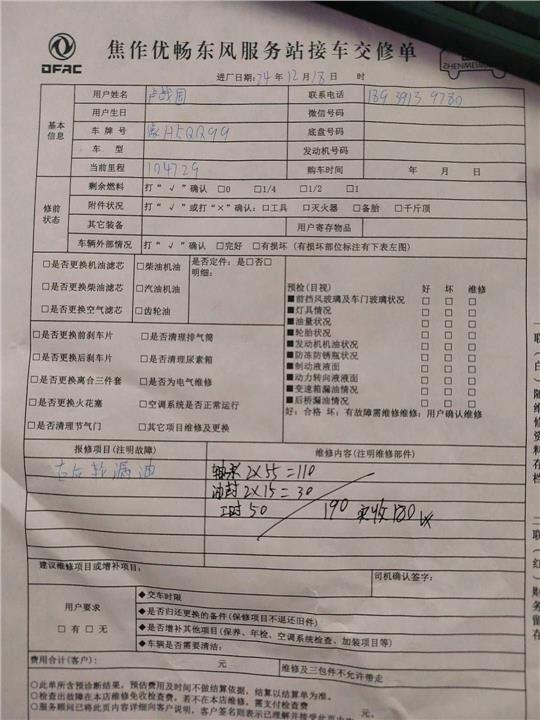 DFAC
焦作优畅东风服务站接车交修单
ZHENMEI
进厂日期:24年12月18日 时
基本信息
用户姓名 联系电话
用户生日 微信号码
车牌号 豫H5QQ99 底盘号码
车型 发动机号码
当前里程 104729 购车时间 年 月 日
修前状态
剩余燃料 打“√”确认 □0 □1/4 □1/2 □1
附件状况 打“√”或打“×”确认:□工具 □灭火器 □备胎 □千斤顶
其它装备 用户寄存物品
车辆外部情况 打“√”确认 □完好 □有损坏(有损坏部位标注有下表左图)
□是否更换机油滤芯 □柴油机油 是否定件:是□否□
明细:
□是否更换柴油滤芯 □汽油机油
□是否更换空气滤芯 □齿轮油
预检(目视) 好 坏 维修
■前挡风玻璃及车门玻璃状况 □ □ □
■灯具情况 □ □ □
■油量状况 □ □ □
■轮胎状况 □ □ □
■发动机机油状况 □ □ □
■防冻防锈瓶状况 □ □ □
■制动液液面 □ □ □
■动力转向液液面 □ □ □
■变速箱漏油情况 □ □ □
■后桥漏油情况 □ □ □
好:合格 坏:有故障需维修维修:用户确认维修
□是否更换前刹车片 □是否清理排气筒
□是否更换后刹车片 □是否清理尿素箱
□是否更换离合三件套 □是否为电气维修
□是否更换火花塞 □空调系统是否正常运行
□是否清理节气门 □其它项目维修及更换
报修项目(注明故障) 维修内容(注明维修部件)
右后轮漏油
轴承 2×55=110
油封 2×15=30
工时 50 190 实收180
建议维修项目或增补项目: 司机确认签字:
用户要求
□有 □无
◆交车时限
◆是否归还更换的备件(保修项目不退还旧件)
◆是否增补其他项目(保养、年检、空调系统检查、加装项目等)
◆车辆是否需要清洁:
费用合计(客户): 元 维修及三包件不允许带走
○此单所含预诊断结果,预估费用及时间不做结算依据,结算以结算单为准。
○检查出故障在本店维修免收检查费,若不在本店维修,需支付检查费 元
○服务顾问已将此页内容详细向客户说明,客户签名则表示已理解并接受此页内容